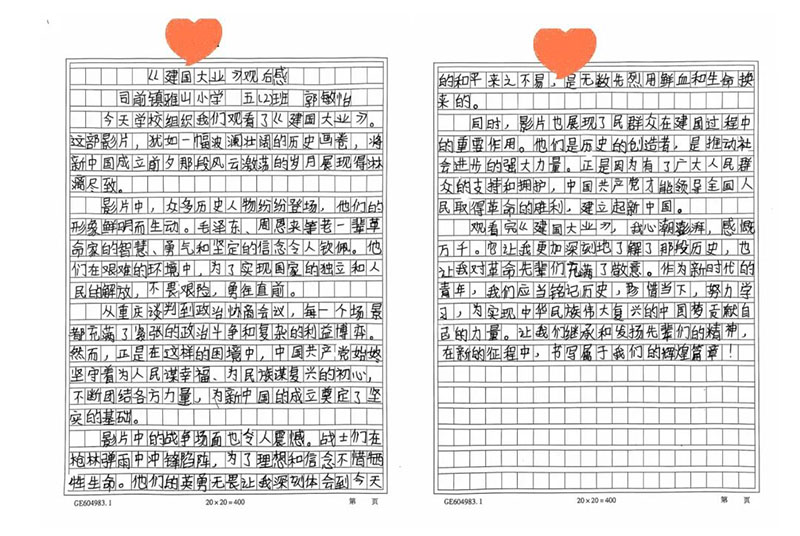 《建国大业》观后感
司前镇雅山小学 五(2)班 郭敏怡
今天学校组织我们观看了《建国大业》。
这部影片，犹如一幅波澜壮阔的历史画卷，将
新中国成立前夕那段风云激荡的岁月展现得淋
漓尽致。
影片中，众多历史人物纷纷登场，他们的
形象鲜明而生动。毛泽东、周恩来等老一辈革
命家的智慧、勇气和坚定的信念令人钦佩。他
们在艰难的环境中，为了实现国家的独立和人
民的解放，不畏艰险，勇往直前。
从重庆谈判到政治协商会议，每一个场景
都充满了紧张的政治斗争和复杂的利益博弈。
然而，正是在这样的困境中，中国共产党始终
坚守着为人民谋幸福、为民族谋复兴的初心，
不断团结各方力量，为新中国的成立奠定了坚
实的基础。
影片中的战争场面也令人震憾。战士们在
枪林弹雨中冲锋陷阵，为了理想和信念不惜牺
牲生命。他们的英勇无畏让我深刻体会到今天
GE604983.1 20×20=400 第 页
的和平来之不易，是无数先烈用鲜血和生命换
来的。
同时，影片也展现了民群众在建国过程中
的重要作用。他们是历史的创造者，是推动社
会进步的强大力量。正是因为有了广大人民群
众的支持和拥护，中国共产党才能领导全国人
民取得革命的胜利，建立起新中国。
观看完《建国大业》，我心潮澎湃，感慨
万千。它让我更加深刻地了解了那段历史，也
让我对革命先辈们充满了敬意。作为新时代的
青年，我们应当铭记历史，珍惜当下，努力学
习，为实现中华民族伟大复兴的中国梦贡献自
己的力量。让我们继承和发扬先辈们的精神，
在新的征程中，书写属于我们的辉煌篇章！
GE604983.1 20×20=400 第 页